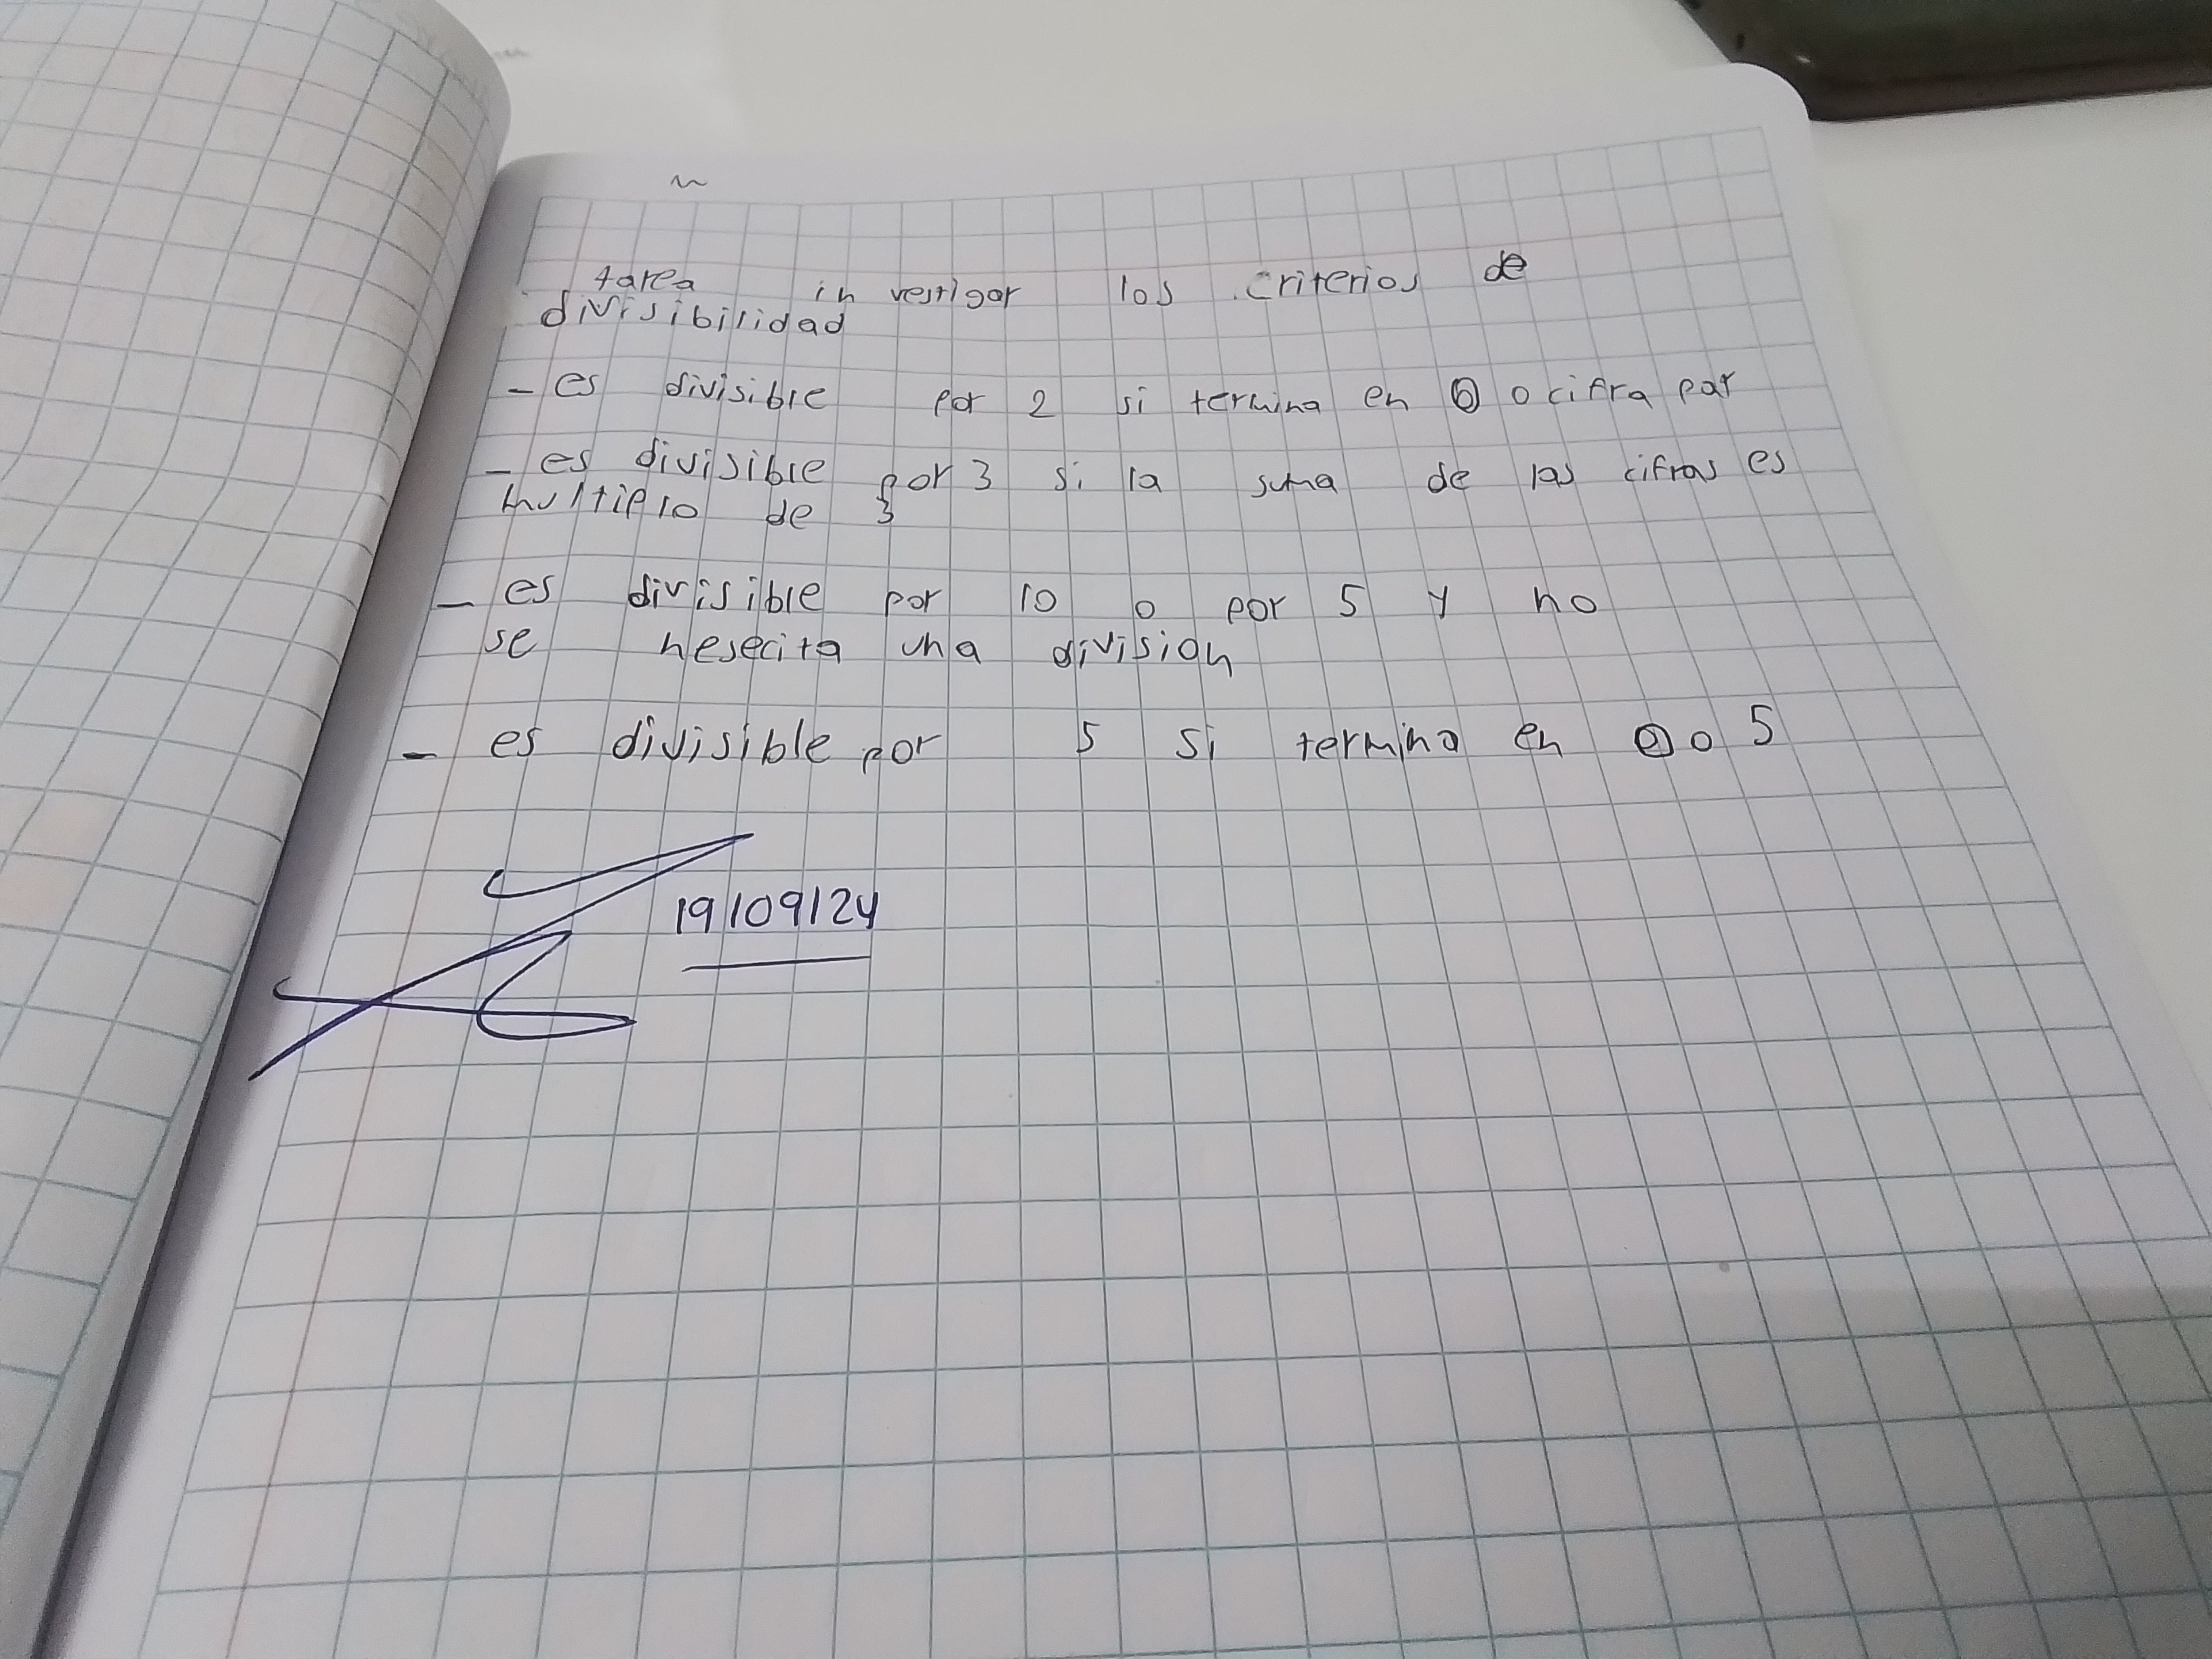 tarea investigar los criterios de
divisibilidad
- es divisible por 2 si termina en 0 o cifra par
- es divisible por 3 si la suma de las cifras es
multiplo de 3
- es divisible por 10 o por 5 y no
se nesecita una division
- es divisible por 5 si termina en 0 o 5
19/09/24